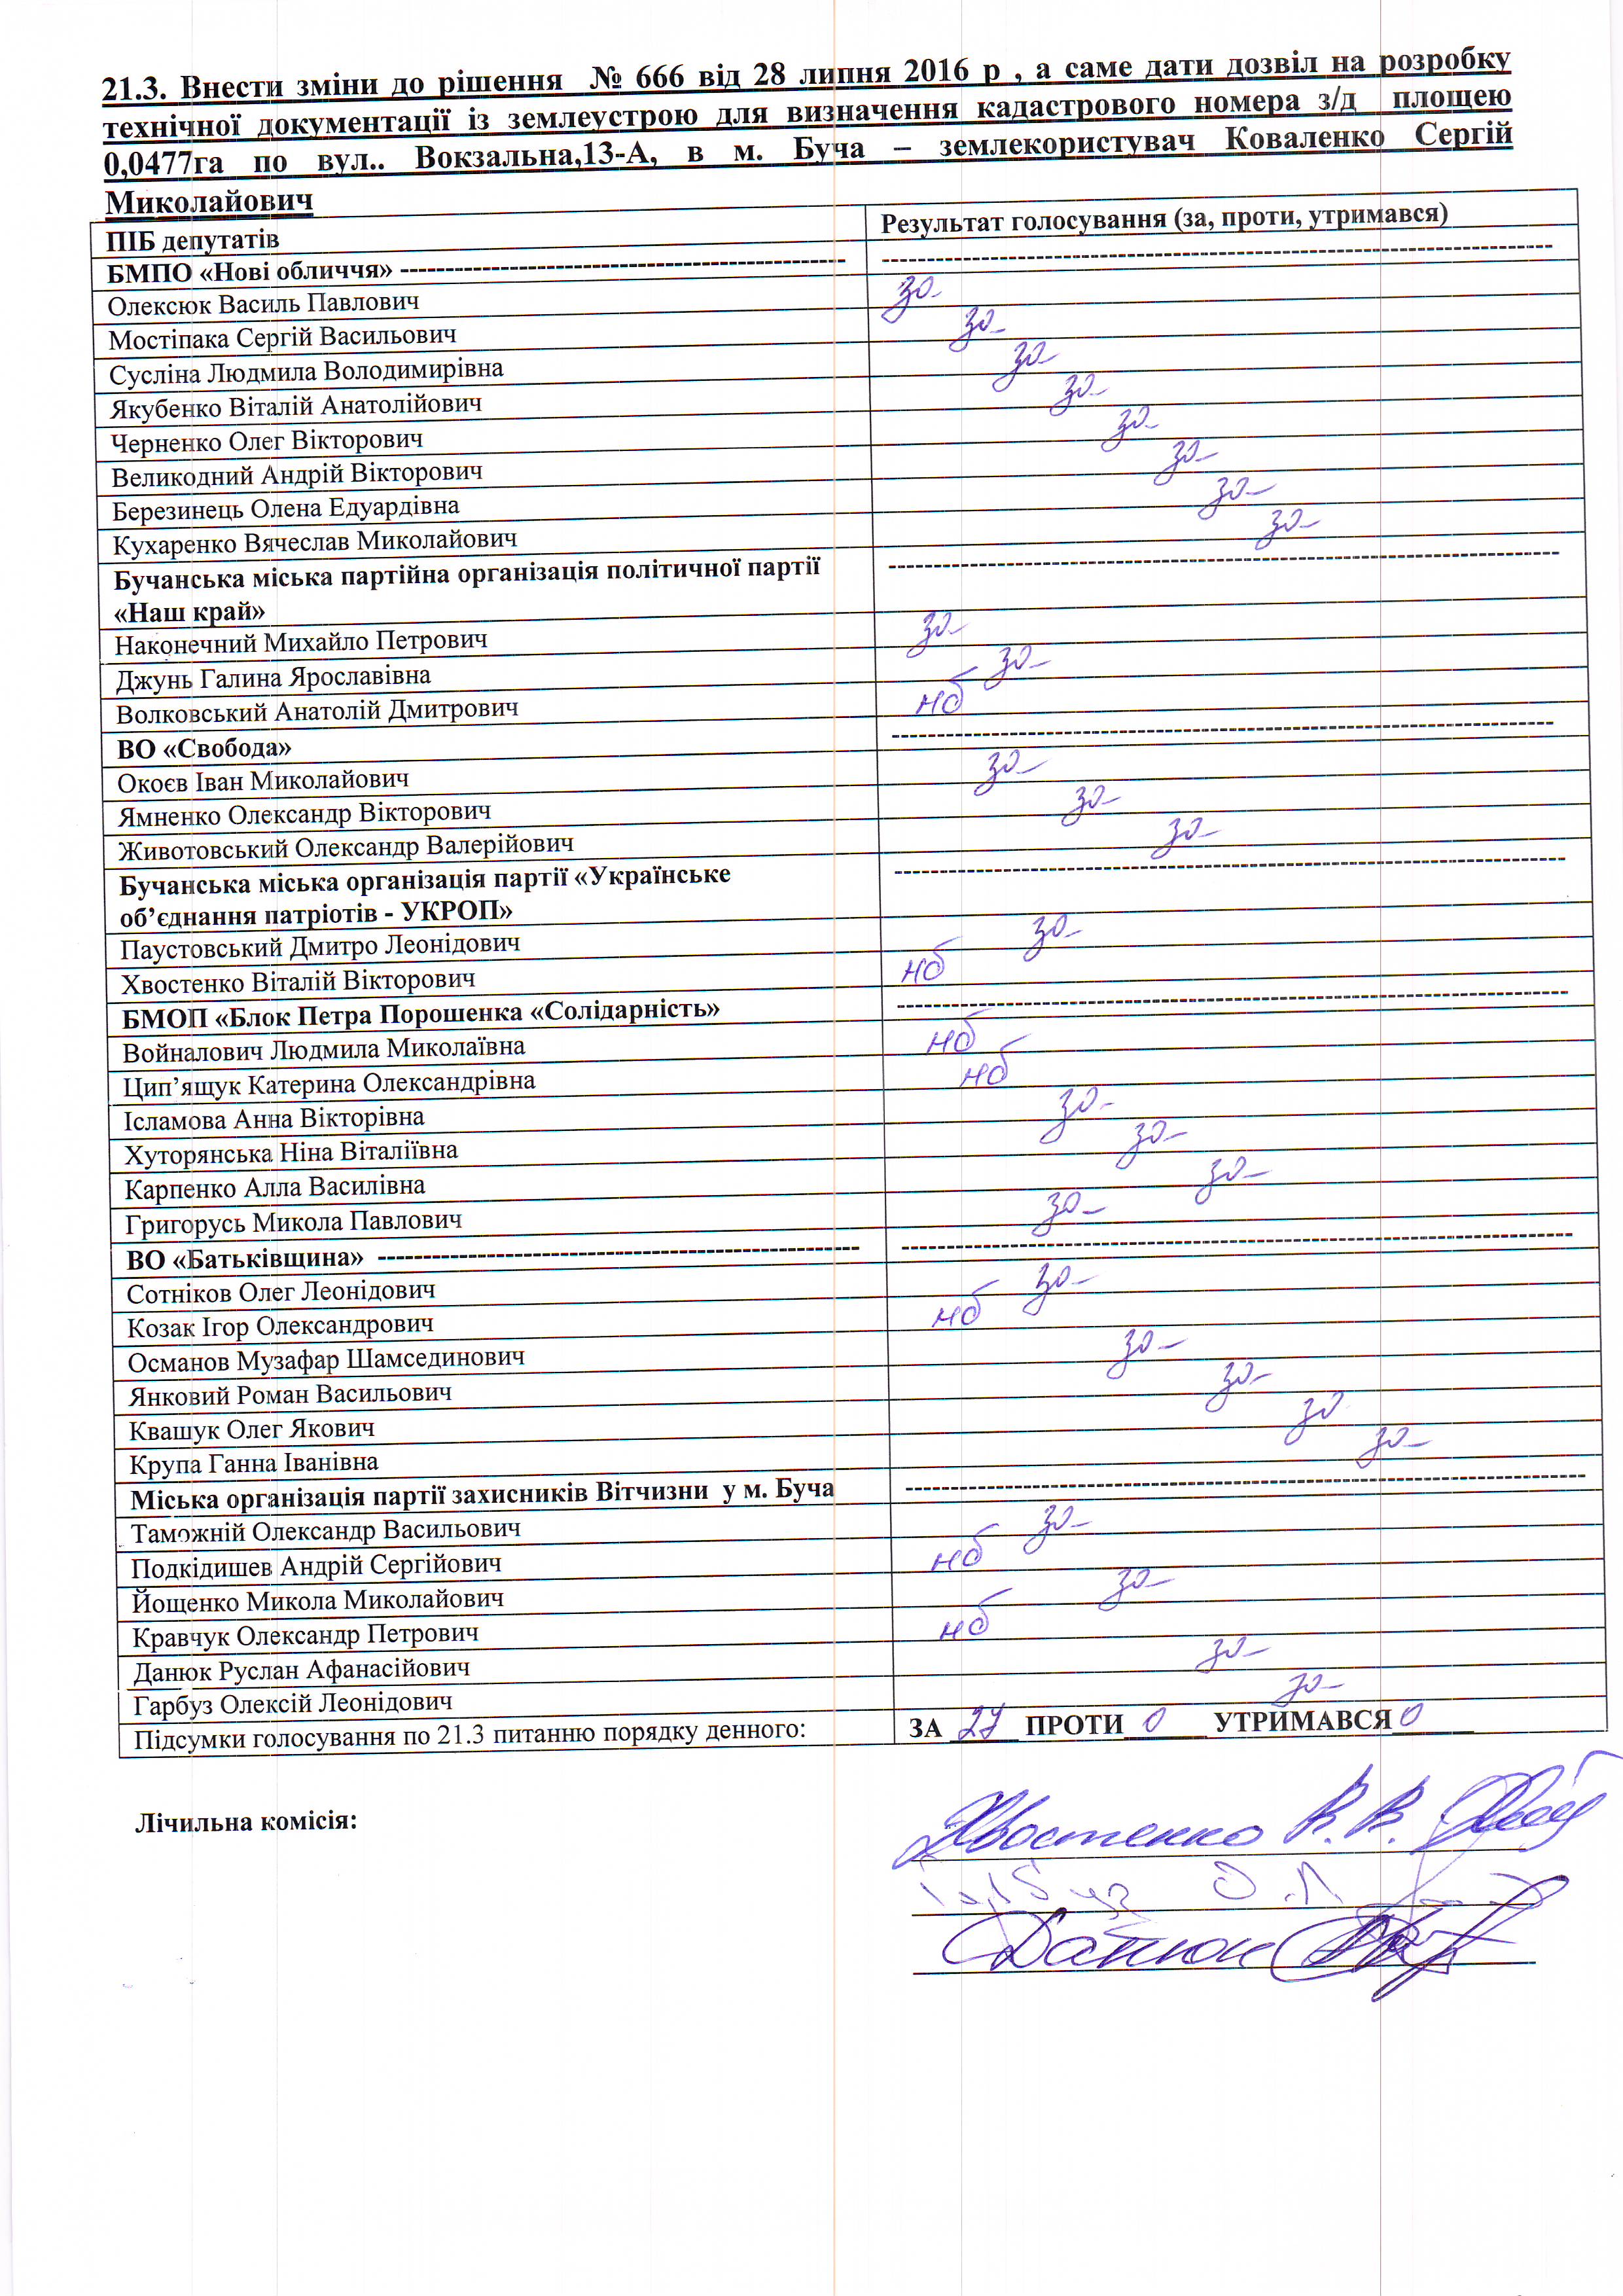 21.3. Внести зміни до рішення № 666 від 28 липня 2016 р , а саме дати дозвіл на розробку
технічної документації із землеустрою для визначення кадастрового номера з/д площею
0,0477га по вул.. Вокзальна,13-А, в м. Буча – землекористувач Коваленко Сергій
Миколайович
ПІБ депутатів Результат голосування (за, проти, утримався)
БМПО «Нові обличчя» --------------------------------------------------
Олексюк Василь Павлович за
Мостіпака Сергій Васильович за
Сусліна Людмила Володимирівна за
Якубенко Віталій Анатолійович за
Черненко Олег Вікторович за
Великодний Андрій Вікторович за
Березинець Олена Едуардівна за
Кухаренко Вячеслав Миколайович за
Бучанська міська партійна організація політичної партії
«Наш край»
Наконечний Михайло Петрович за
Джунь Галина Ярославівна за
Волковський Анатолій Дмитрович нб
ВО «Свобода»
Окоєв Іван Миколайович за
Ямненко Олександр Вікторович за
Животовський Олександр Валерійович за
Бучанська міська організація партії «Українське
об’єднання патріотів - УКРОП»
Паустовський Дмитро Леонідович за
Хвостенко Віталій Вікторович нб
БМОП «Блок Петра Порошенка «Солідарність»
Войналович Людмила Миколаївна нб
Цип’ящук Катерина Олександрівна нб
Ісламова Анна Вікторівна за
Хуторянська Ніна Віталіївна за
Карпенко Алла Василівна за
Григорусь Микола Павлович за
ВО «Батьківщина» --------------------------------------------------
Сотніков Олег Леонідович за
Козак Ігор Олександрович нб
Османов Музафар Шамсединович за
Янковий Роман Васильович за
Квашук Олег Якович за
Крупа Ганна Іванівна за
Міська організація партії захисників Вітчизни у м. Буча
Таможній Олександр Васильович за
Подкідишев Андрій Сергійович нб
Йощенко Микола Миколайович за
Кравчук Олександр Петрович нб
Данюк Руслан Афанасійович за
Гарбуз Олексій Леонідович за
Підсумки голосування по 21.3 питанню порядку денного: ЗА 27 ПРОТИ 0 УТРИМАВСЯ 0
Лічильна комісія:
Хвостенко В.В.
Гарбуз О.Л.
Данюк